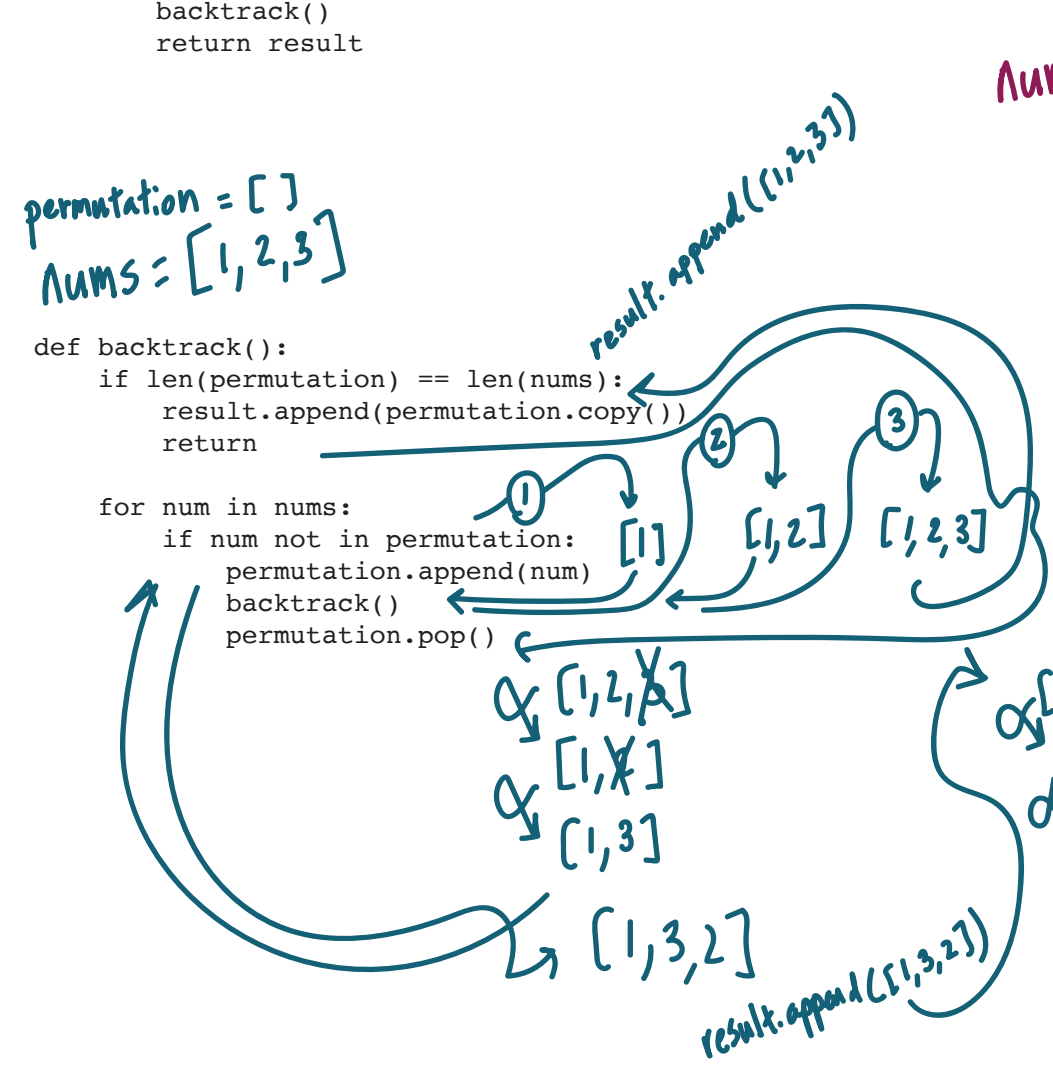 backtrack()
return result
permutation = [ ]
nums = [1, 2, 3]
result.append([1,2,3])
def backtrack():
if len(permutation) == len(nums):
result.append(permutation.copy())
return
1
2
3
for num in nums:
if num not in permutation:
permutation.append(num)
backtrack()
permutation.pop()
[1]
[1,2]
[1,2,3]
[1,2,3]
[1,2]
[1,3]
[1,3,2]
result.append([1,3,2])